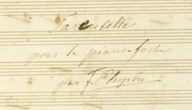 Tarentelle
pour le pianoforte
par F. Chopin